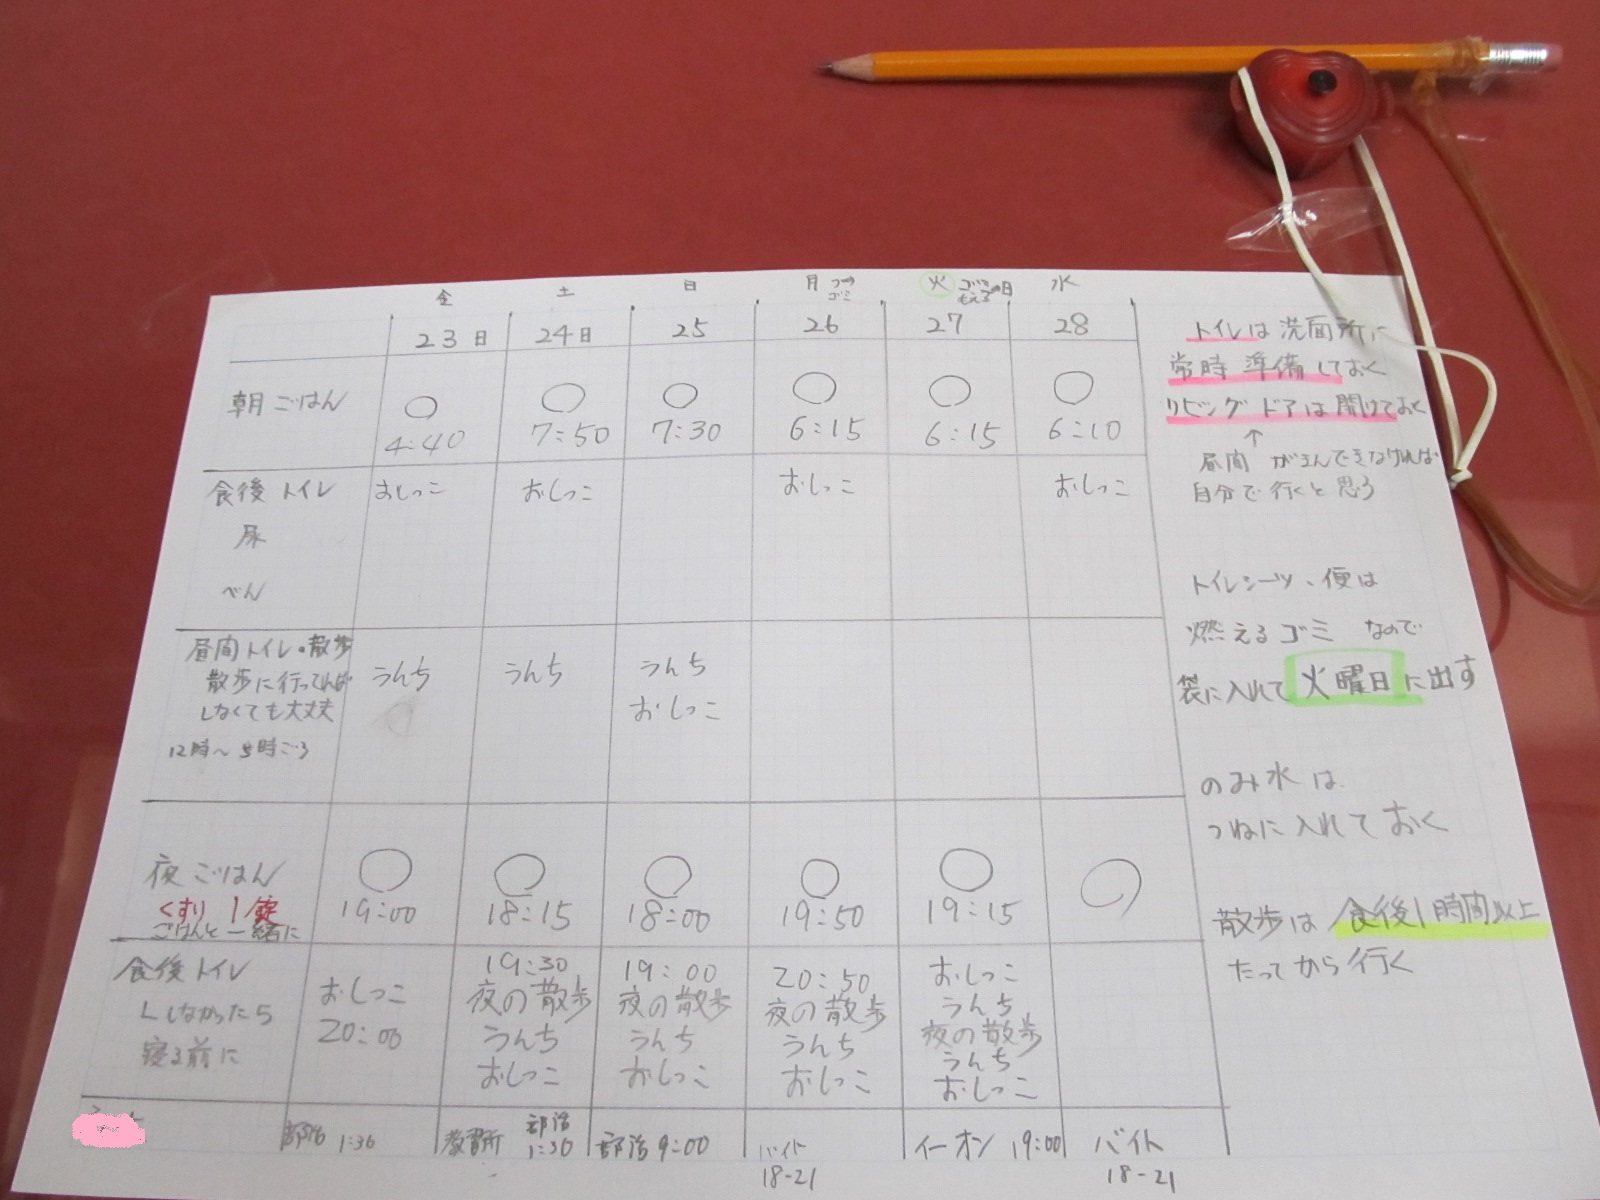 金 土 日 月 ゴミ 火 ゴミ もえる日 水
23日 24日 25 26 27 28
朝ごはん
4:40 7:50 7:30 6:15 6:15 6:10
食後トイレ おしっこ おしっこ おしっこ おしっこ
尿
べん
昼間トイレ・散歩
散歩に行ってれば うんち うんち うんち
しなくても大丈夫 おしっこ
12時〜5時ごろ
夜ごはん
くすり 1錠 19:00 18:15 18:00 19:50 19:15
ごはんと一緒に
食後トイレ おしっこ 19:30 19:00 20:50 おしっこ
しなかったら 20:00 夜の散歩 夜の散歩 夜の散歩 うんち
寝る前に うんち うんち うんち 夜の散歩
おしっこ おしっこ おしっこ うんち
おしっこ
部活 1:30 教習所 部活 1:30 部活 9:00 バイト イーオン 19:00 バイト
18-21 18-21
トイレは洗面所に
常時準備しておく
リビングドアは開けておく
↑
昼間 がまんできなければ
自分で行くと思う
トイレシーツ、便は
燃えるゴミ なので
袋に入れて火曜日に出す
のみ水は
つねに入れておく
散歩は食後1時間以上
たってから行く